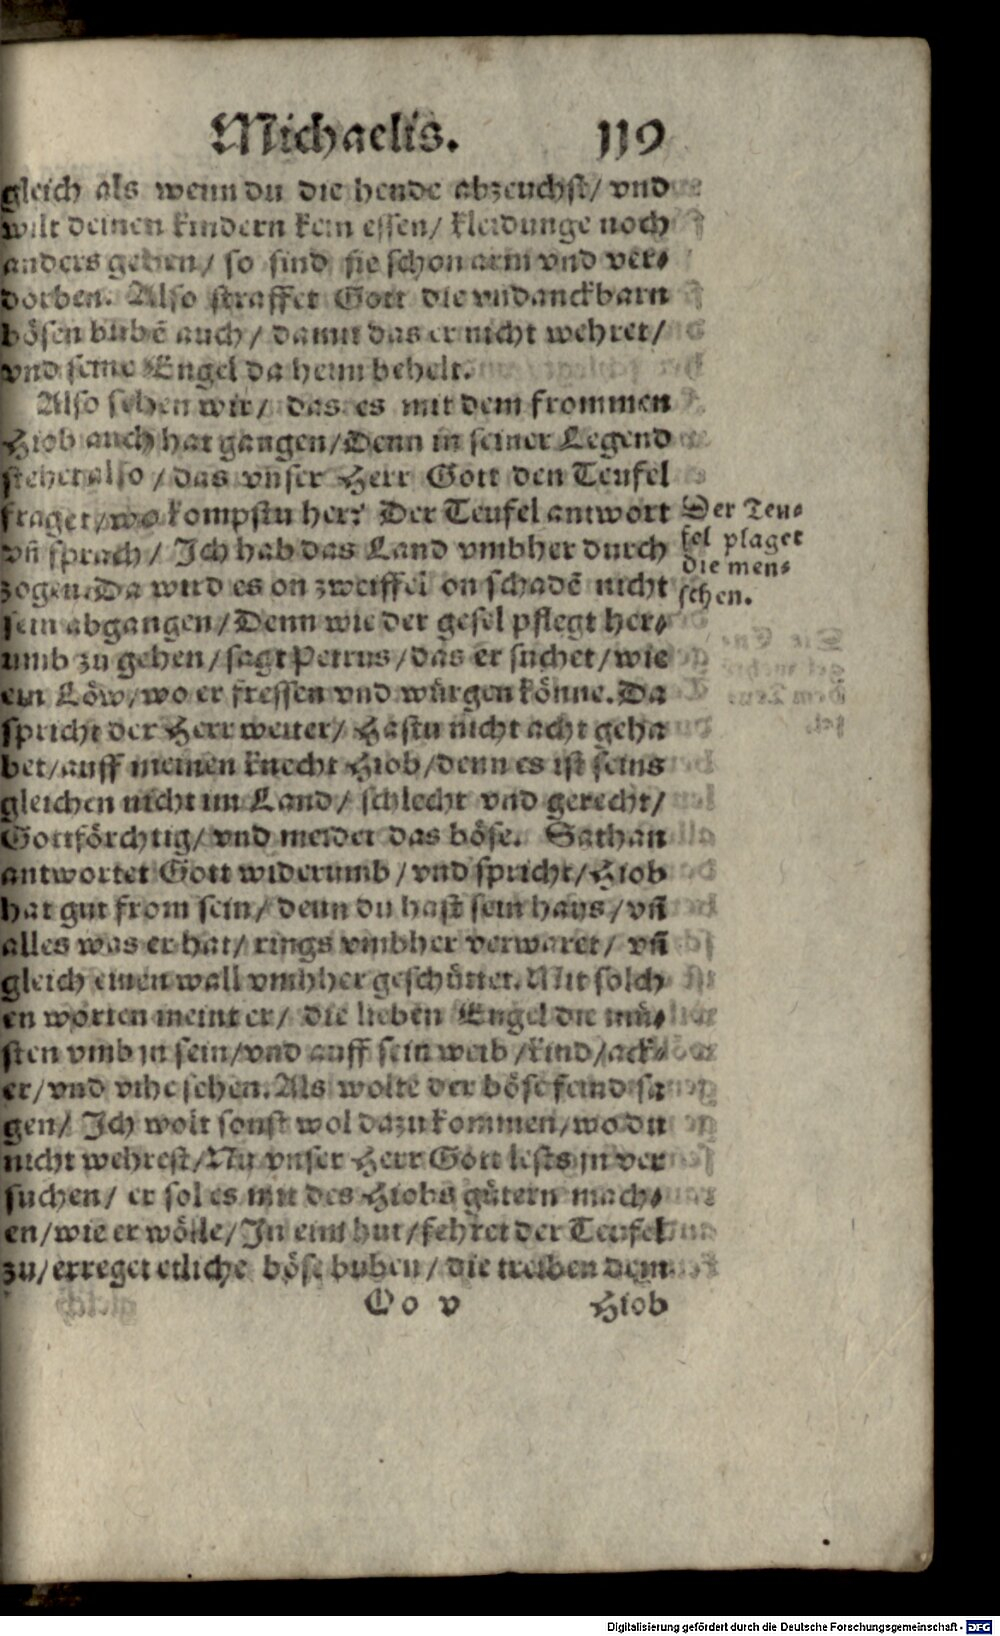 Michaelis. 119
gleich als wenn du die hende abzeuchst/ vnd
wilt deinen kindern kein essen/ kleidunge noch
anders geben/ so sind sie schon arm vnd ver⸗
dorben. Also straffet Gott die vndanckbarn
bösen bubē auch/ damit das er nicht wehret/
vnd seine Engel da heim behelt.
Also sehen wir/ das es mit dem frommen
Hiob auch hat gangen/Denn in seiner Legend
stehet also/ das vnser Herr Gott den Teufel
fraget/wo kompstu her? Der Teufel antwort
vñ sprach/ Ich hab das Land vmbher durch
zogen.Da wird es on zweiffel on schadē nicht
sein abgangen/Denn wie der gesel pflegt her⸗
umb zu gehen/sagt Petrus/das er suchet/wie
ein Löw/wo er fressen vnd würgen könne.Da
spricht der Herr weiter/ Hastu nicht acht geha
bet/auff meinen knecht Hiob/denn es ist seins
gleichen nicht im Land/ schlecht vnd gerecht/
Gottförchtig/ vnd meidet das böse. Sathan
antwortet Gott widerumb/vnd spricht/Hiob
hat gut from sein/ denn du hast sein haus/vñ
alles was er hat/ rings vmbher verwaret/ vñ
gleich einen wall vmbher geschüttet.Mit solch
en worten meint er/ die lieben Engel die mü⸗
sten vmb jn sein/vnd auff sein weib/kind/ack⸗
er/vnd vihe sehen.Als wolte der böse feind sa
gen/ Ich wolt sonst wol dazu kommen/wo du
nicht wehrest/Nu vnser Herr Gott lests jn ver
suchen/ er sol es mit des Hiobs gütern mach⸗
en/wie er wölle/In eim hui/fehret der Teufel
zu/erreget etliche böse buben/die treiben dem
Oo v Hiob
Der Teu⸗
fel plaget
die men⸗
schen.
Digitalisierung gefördert durch die Deutsche Forschungsgemeinschaft - DFG